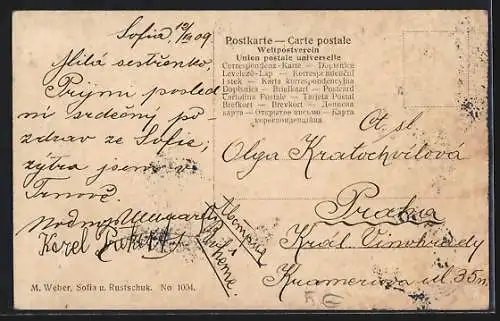 Sofia 12/III 09
Milá sestřenko,
Přijmi posled
ní srdečný po
zdrav ze Sofie;
zýtra jsem v
Trnově.
Karel
Postkarte — Carte postale
Weltpostverein
Union postale universelle
Correspondenz-Karte — Dopisnice
Levelező-Lap — Korrespondenčni
listek — Karta korrespondencyjna
Dopisnica — Briefkaart — Postcard
Cartolina Postale — Tarjeta Postal
Brefkort — Brevkort — Дописна
карта — Открытое письмо — Карта
корреспонденција
Ct. sl.
Olga Kratochvílová
Praha
Král. Vinohrady
Kramerova ul. 35n
Bohême.
M. Weber, Sofia u. Rustschuk. No 1004.